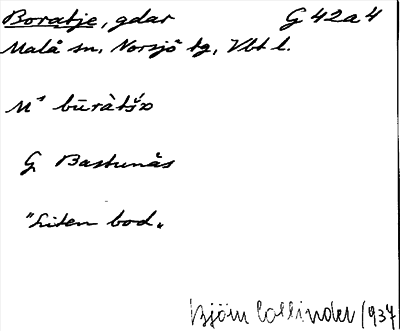 Boratje, gdar G 42a4
Malå sn, Norsjö tg, Vbt l.
Ms būràtšə
G Bastunås
"Liten bod"
Björn Collinder 1937